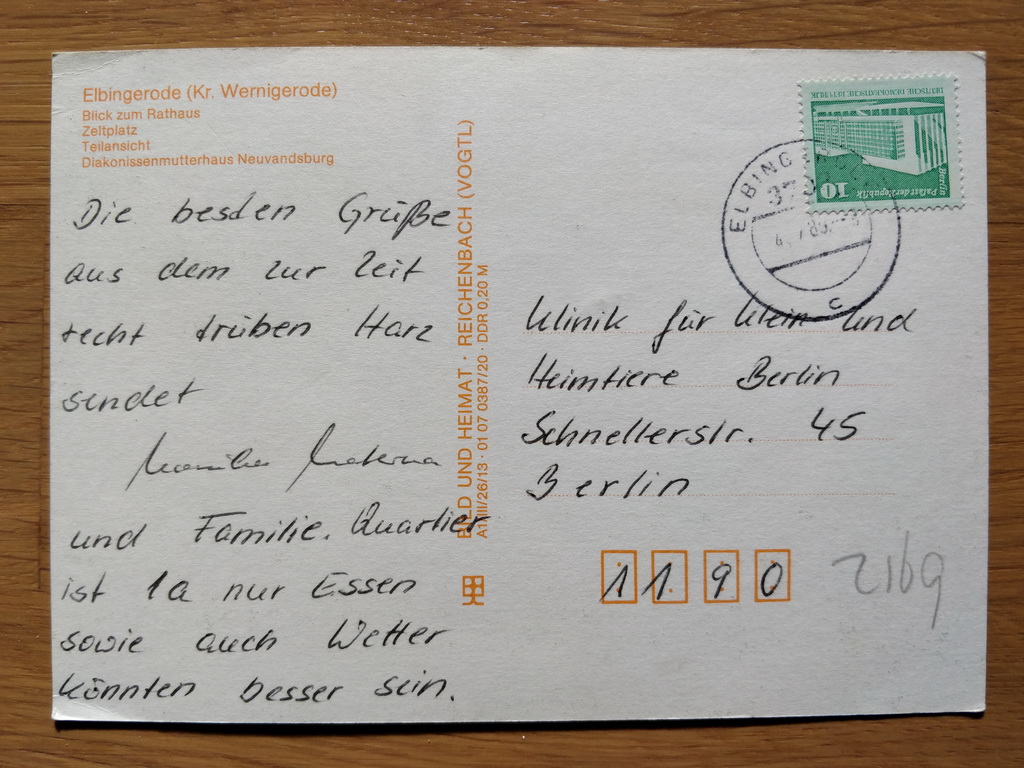 Elbingerode (Kr. Wernigerode)
Blick zum Rathaus
Zeltplatz
Teilansicht
Diakonissenmutterhaus Neuvandsburg
Die besten Grüße
aus dem zur Zeit
recht trüben Harz
sendet
und Familie. Quartier
ist 1a nur Essen
sowie auch Wetter
könnten besser sein.
BILD UND HEIMAT · REICHENBACH (VOGTL)
A1/III/26/13 · 01 07 0387/20 · DDR 0,20 M
DEUTSCHE DEMOKRATISCHE REPUBLIK
Berlin
Palast der Republik
10
ELBING
C
Klinik für Klein und
Heimtiere Berlin
Schnellerstr. 45
Berlin
1190